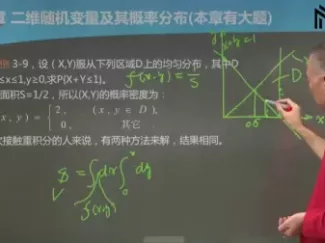 二维随机变量及其概率分布(本章有大题)
3-9，设（X,Y)服从下列区域D上的均匀分布，其中D
≤x≤1,y≥0,求P(X+Y≤1)。
面积S=1/2，所以(X,Y)的概率密度为：
x, y) = { 2, (x, y ∈ D),
0, 其它
次接触重积分的人来说，有两种方法来解，结果相同。
f(x,y)=1/S
x+y=1
D
0.5
x
f(x,y)